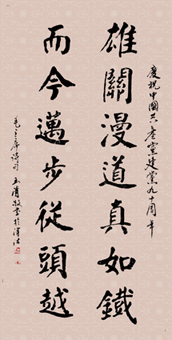 慶祝中國共產黨建黨九十周年
雄關漫道真如鐵
而今邁步從頭越
毛主席詩句